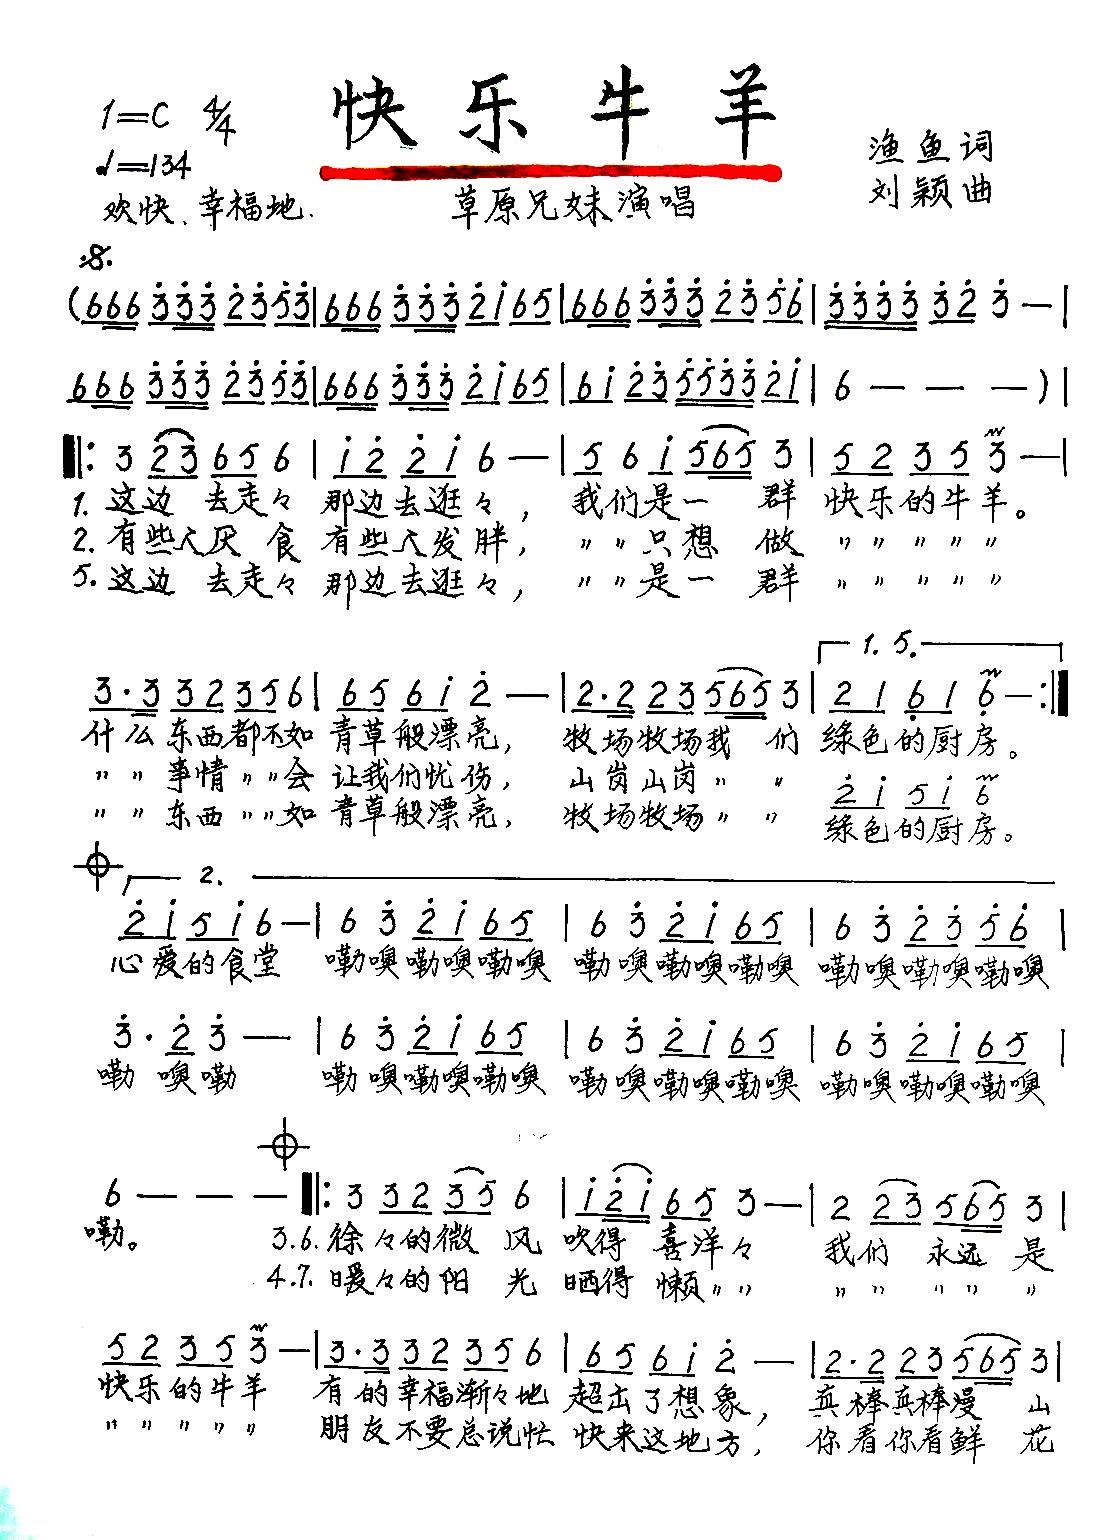 快乐牛羊
1=C 4/4
♩=134
欢快、幸福地.
草原兄妹演唱
渔鱼词
刘颖曲
(666 333 23 53|666 333 2i 65|666 333 23 56|3333 32 3 —|
666 333 23 53|666 333 2i 65|6i 23 5533 2i|6 — — —)|
‖: 3 23 65 6|i2 2i 6 —|5 6 i 565 3|52 35 3 —|
1. 这边 去走々 那边去逛々, 我们是一 群 快乐的牛羊。
2. 有些人厌 食 有些人发胖, 〃〃只想 做 〃〃〃〃〃
5. 这边 去走々 那边去逛々, 〃〃是一 群 〃〃〃〃〃
1. 5.
3·3 32 35 6|65 6i 2 —|2·2 23 565 3|21 61 6 — :‖
什么东西都不如 青草般漂亮, 牧场牧场我 们 绿色的厨房。
〃〃事情〃〃会 让我们忧伤, 山岗山岗〃 〃 2i 5i 6
〃〃东西〃〃如 青草般漂亮, 牧场牧场〃 〃 绿色的厨房。
2.
2i 5i 6 —|6 3 2i 65|6 3 2i 65|6 3 23 56|
心爱的食堂 嘞噢嘞噢嘞噢 嘞噢嘞噢嘞噢 嘞噢嘞噢嘞噢
3· 2 3 —|6 3 2i 65|6 3 2i 65|6 3 2i 65|
嘞 噢嘞 嘞噢嘞噢嘞噢 嘞噢嘞噢嘞噢 嘞噢嘞噢嘞噢
6 — — — ‖: 3 32 35 6|i2i 65 3 —|2 23 565 3|
嘞。 3.6. 徐々的微 风 吹得 喜洋々 我们 永远 是
4.7. 暖々的阳 光 晒得 懒〃〃 〃〃 〃〃 〃
52 35 3 —|3·3 32 35 6|65 6i 2 —|2·2 23 565 3|
快乐的牛羊 有的幸福渐々地 超出了想象, 真棒真棒漫 山
〃〃〃〃〃 朋友不要总说忙 快来这地方, 你看你看鲜 花